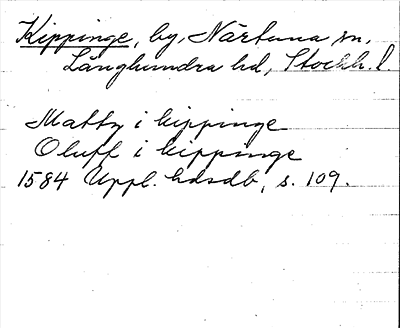 Kippinge, by, Närtuna sn,
Långhundra hd, Stockh. l
Matts i kippinge
Oluff i kippinge
1584 Uppl. hdsdb, s. 109.